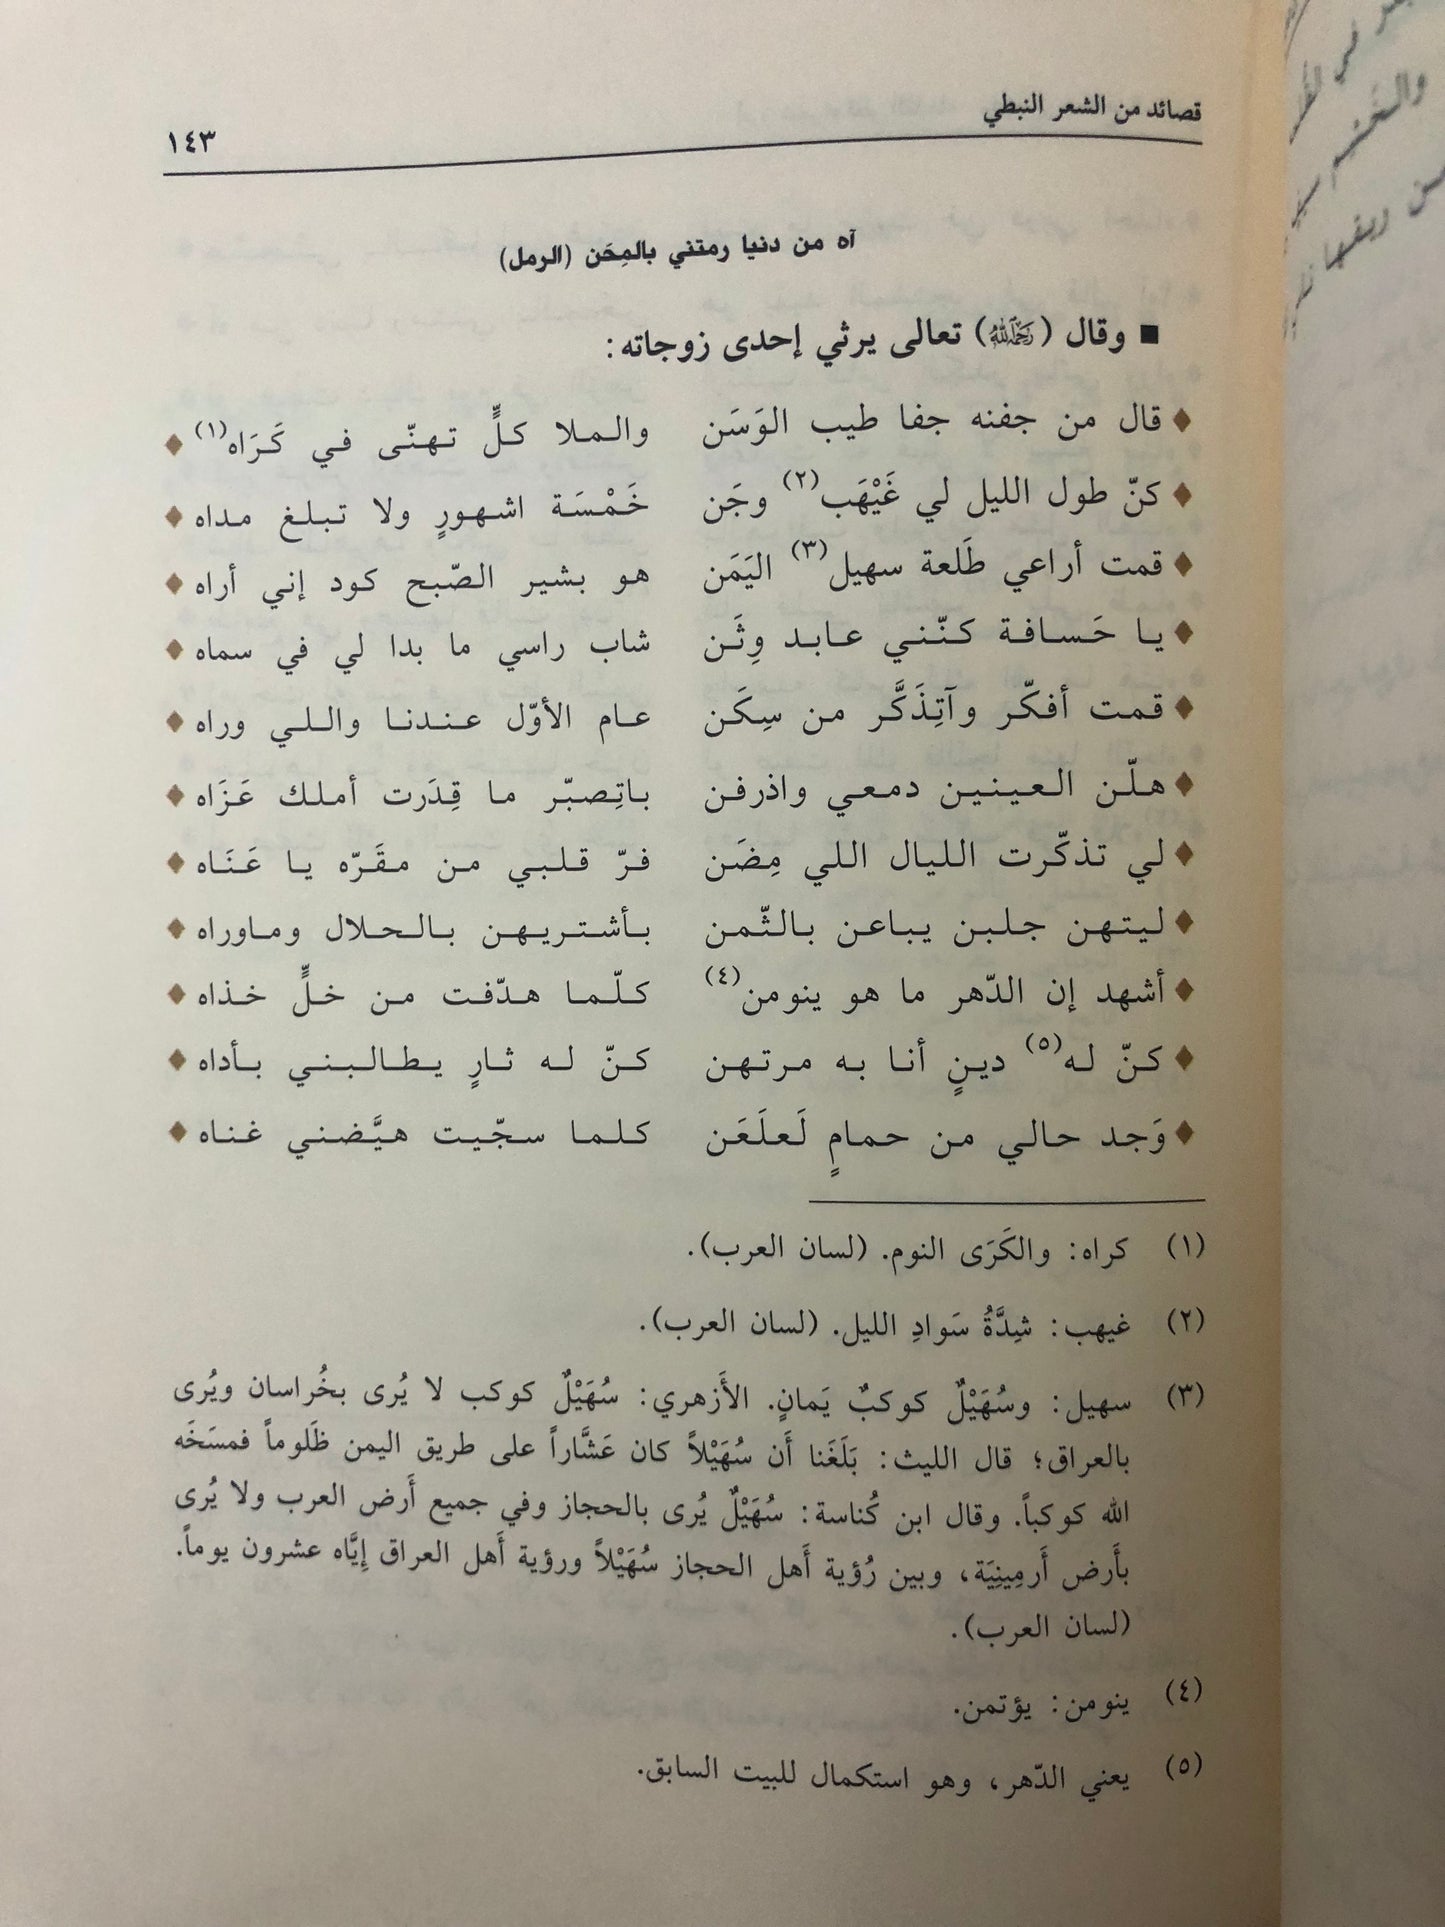 قصائد من الشعر النبطي
١٤٣
آه من دنيا رمتني بالمِحَن (الرمل)
■ وقال (رَحِمَهُ اللَّهُ) تعالى يرثي إحدى زوجاته:
♦ قال من جفنه جفا طيب الوَسَن والملا كلٍّ تهنّى في كَرَاه(١) ♦
♦ كنّ طول الليل لي غَيْهَب(٢) وجَن خَمْسَة اشهورٍ ولا تبلغ مداه ♦
♦ قمت أراعي طَلعة سهيل(٣) اليَمَن هو بشير الصّبح كود إني أراه ♦
♦ يا حَسافة كنّني عابد وِثَن شاب راسي ما بدا لي في سماه ♦
♦ قمت أفكّر وآتِذَكَّر من سِكَن عام الأوّل عندنا واللي وراه ♦
♦ هلّن العينين دمعي واذرفن باتِصبّر ما قِدَرت أملك عَزَاه ♦
♦ لي تذكّرت الليال اللي مِضَن فرّ قلبي من مقَرّه يا عَنَاه ♦
♦ ليتهن جلبن يباعن بالثّمن بأشتريهن بالحلال وماوراه ♦
♦ أشهد إن الدّهر ما هو ينومن(٤) كلّما هدّفت من خلٍّ خذاه ♦
♦ كنّ له(٥) دينٍ أنا به مرتهن كنّ له ثارٍ يطالبني بأداه ♦
♦ وَجد حالي من حمامٍ لَعلَعَن كلما سجّيت هيَّضني غناه ♦
(١) كراه: والكَرَى النوم. (لسان العرب).
(٢) غيهب: شِدَّةُ سَوادِ الليل. (لسان العرب).
(٣) سهيل: وسُهَيْلٌ كوكبٌ يَمانٍ. الأَزهري: سُهَيْلٌ كوكب لا يُرى بخُراسان ويُرى
بالعراق؛ قال الليث: بَلَغَنا أَن سُهَيْلاً كان عَشَّاراً على طريق اليمن ظَلوماً فمسَخَه
الله كوكباً. وقال ابن كُناسة: سُهَيْلٌ يُرى بالحجاز وفي جميع أَرض العرب ولا يُرى
بأَرض أَرمِينِيَة، وبين رُؤية أَهل الحجاز سُهَيْلاً ورؤية أَهل العراق إِيَّاه عشرون يوماً.
(لسان العرب).
(٤) ينومن: يؤتمن.
(٥) يعني الدّهر، وهو استكمال للبيت السابق.